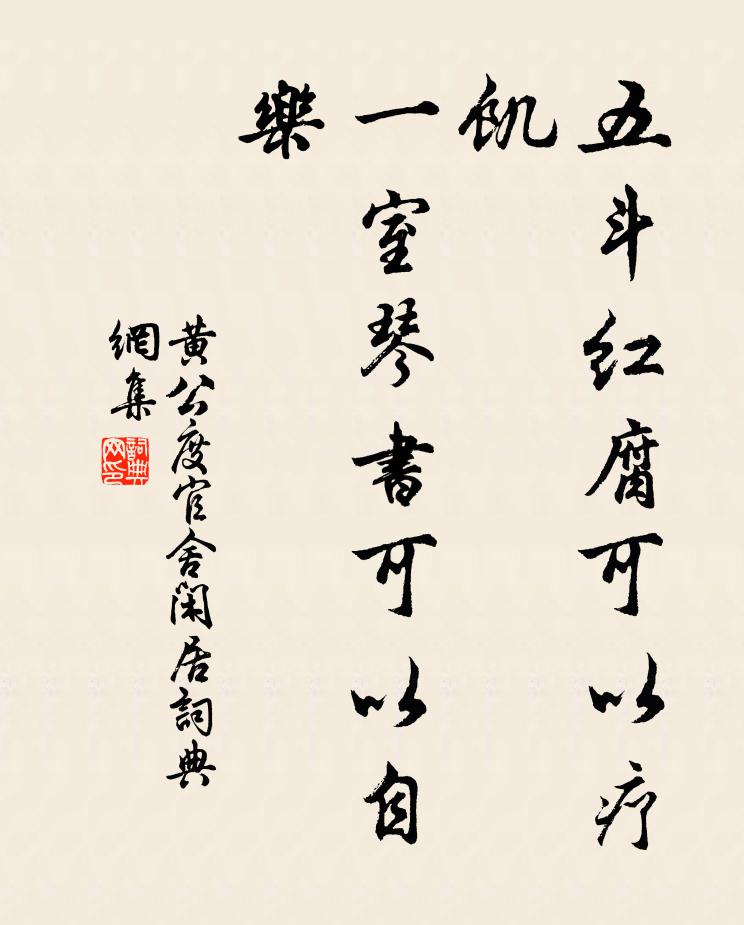 五斗红腐可以疗
飢
一室琴書可以自
樂
黃公度官舍閑居詞典
網集
詞典
网印